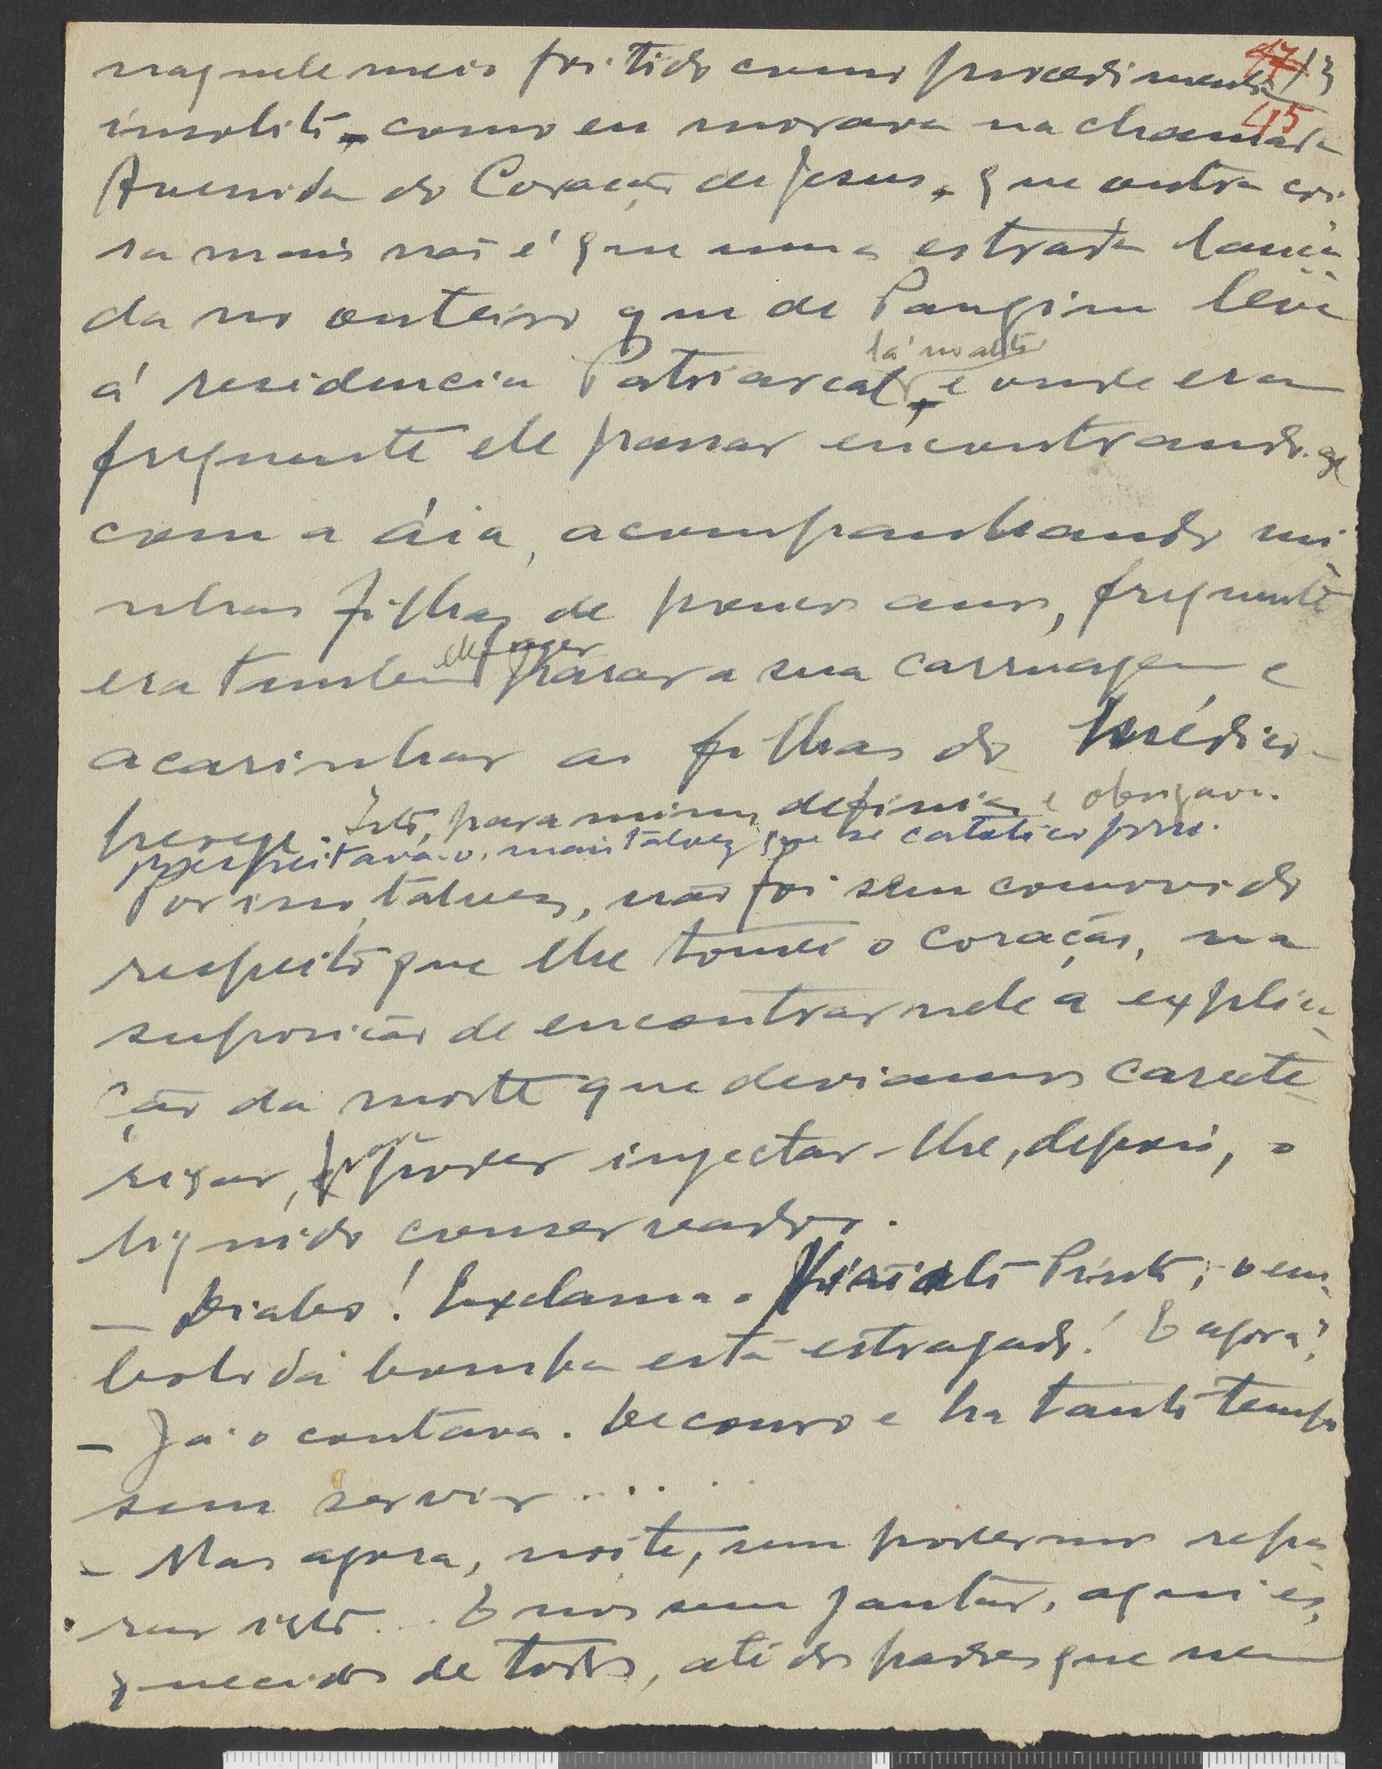 47 13
45
naquele meio foi tido como procedimento
insolito - como eu morava na chamada
Avenida do Coração de Jesus, que outra coi-
sa mais não é que uma estrada lança-
da no outeiro que de Pangim leva
lá no alto
á residencia Patriarcal, e onde era
frequente ele passar encontrando-se
com a áia, acompanhando mi-
nhas filhas de poucos anos, frequente
ele fazer
era tambem parar a sua carruagem e
acarinhar as filhas do Médico
herege. Isto, para mim, definia-o e obrigava.
respeitava-o, mais talvez que se catolico fosse.
Por isso, talvez, não foi sem comovido
respeito que lhe tomei o coração, na
suposição de encontrar nele a explica-
ção da morte que deviamos caracte-
rizar, e poder injectar-lhe, depois, o
liquido conservador.
— Diabo! Exclama o Pinto, o em-
bolo da bomba está estragado! E agora?
— Já o contava. De couro e ha tanto tempo
sem servir.....
— Mas agora, noite, sem podermos repa-
rar isto... E nós sem jantar, aqui es-
quecidos de todos, até dos padres que nem